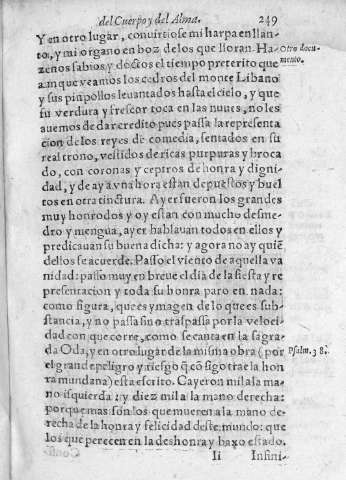 del Cuerpo y del Alma. 249
Y en otro lugar, convirtiose mi harpa en llan-
to, y mi organo en boz de los que lloran. Ha-
zenos sabios, y doctos el tiempo preterito que
aunque veamos los cedros del monte Libano
y sus pinpollos levantados hasta el cielo, y que
su verdura y frescor toca en las nuues, no les
auemos de dar credito pues passa la representa
cion de los reyes de comedia, sentados en su
real trono, vestidos de ricas purpuras y broca
do, con coronas y ceptros de honra y digni-
dad, y de ay a vna hora estan depuestos y buel
tos en otra tinctura. Ayer fueron los grandes
muy honrodos y oy estan con mucho desme-
dro y mengua, ayer hablauan todos en ellos y
predicauan su buena dicha: y agora no ay quiẽ
dellos se acuerde. Passo el viento de aquella va
nidad: passo muy en breue el dia de la fiesta y re
presentacion y toda su honra paro en nada:
como figura, que es ymagen de lo que es sub-
stancia, y no passa sino traspassa por la veloci-
dad con que corre, como se canta en la sagra-
da Oda, y en otro lugar de la misma obra (por
el grande peligro y riesgo q̃ cõsigo trae la hon
ra mundana) esta escrito. Cayeron mil a la ma-
no isquierda: y diez mil a la mano derecha:
porque mas son los que mueren a la mano de-
recha de la honra y felicidad deste mundo: que
los que perecen en la deshonra y baxo estado.
Ii Infini-
Otro docu-
mento.
Psalm. 38.